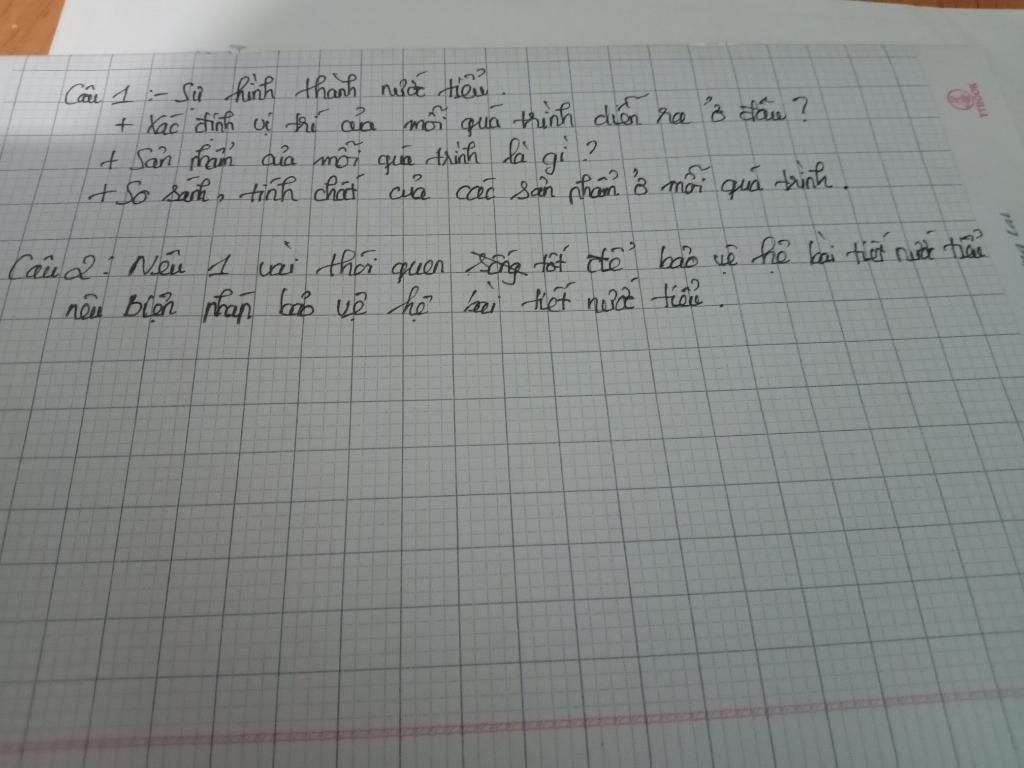 Câu 1 :- Sự hình thành nước tiểu.
+ Xác định vị trí của mỗi quá trình diễn ra ở đâu ?
+ Sản phẩm của mỗi quá trình là gì ?
+ So sánh, tính chất của các sản phẩm ở mỗi quá trình.
Câu 2 : Nêu 1 vài thói quen sống tốt để bảo vệ hệ bài tiết nước tiểu
nêu biện pháp bảo vệ hệ bài tiết nước tiểu.